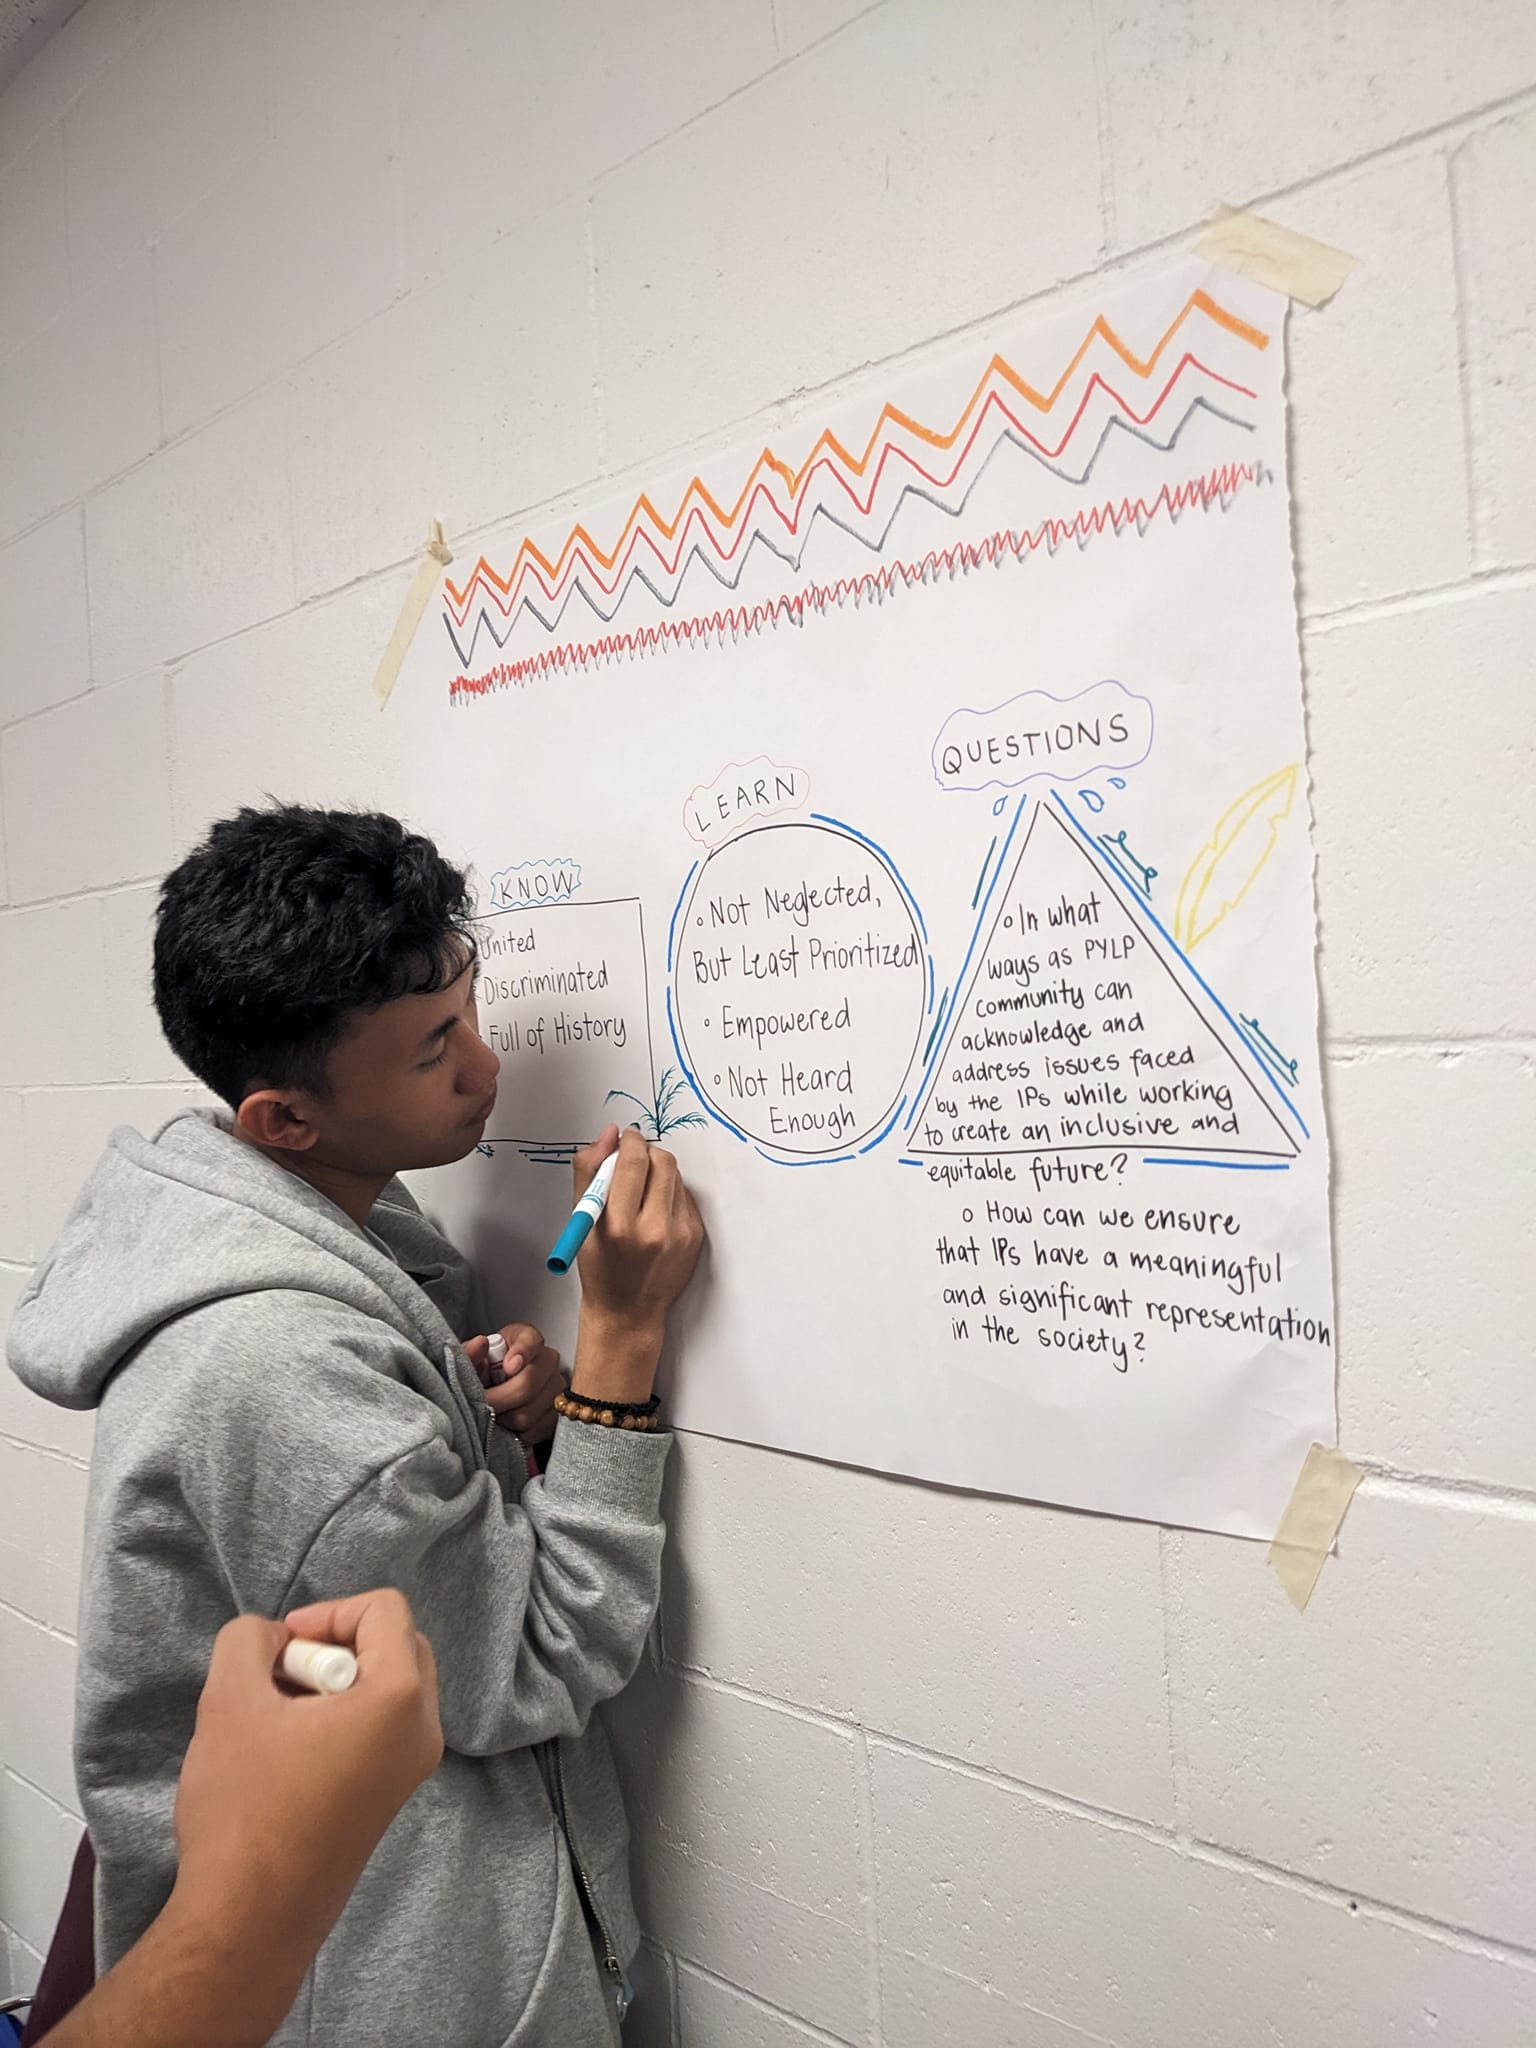 KNOW
United
Discriminated
Full of History
LEARN
• Not Neglected,
But Least Prioritized
• Empowered
• Not Heard
Enough
QUESTIONS
• In what
ways as PYLP
community can
acknowledge and
address issues faced
by the IPs while working
to create an inclusive and
equitable future?
• How can we ensure
that IPs have a meaningful
and significant representation
in the society?